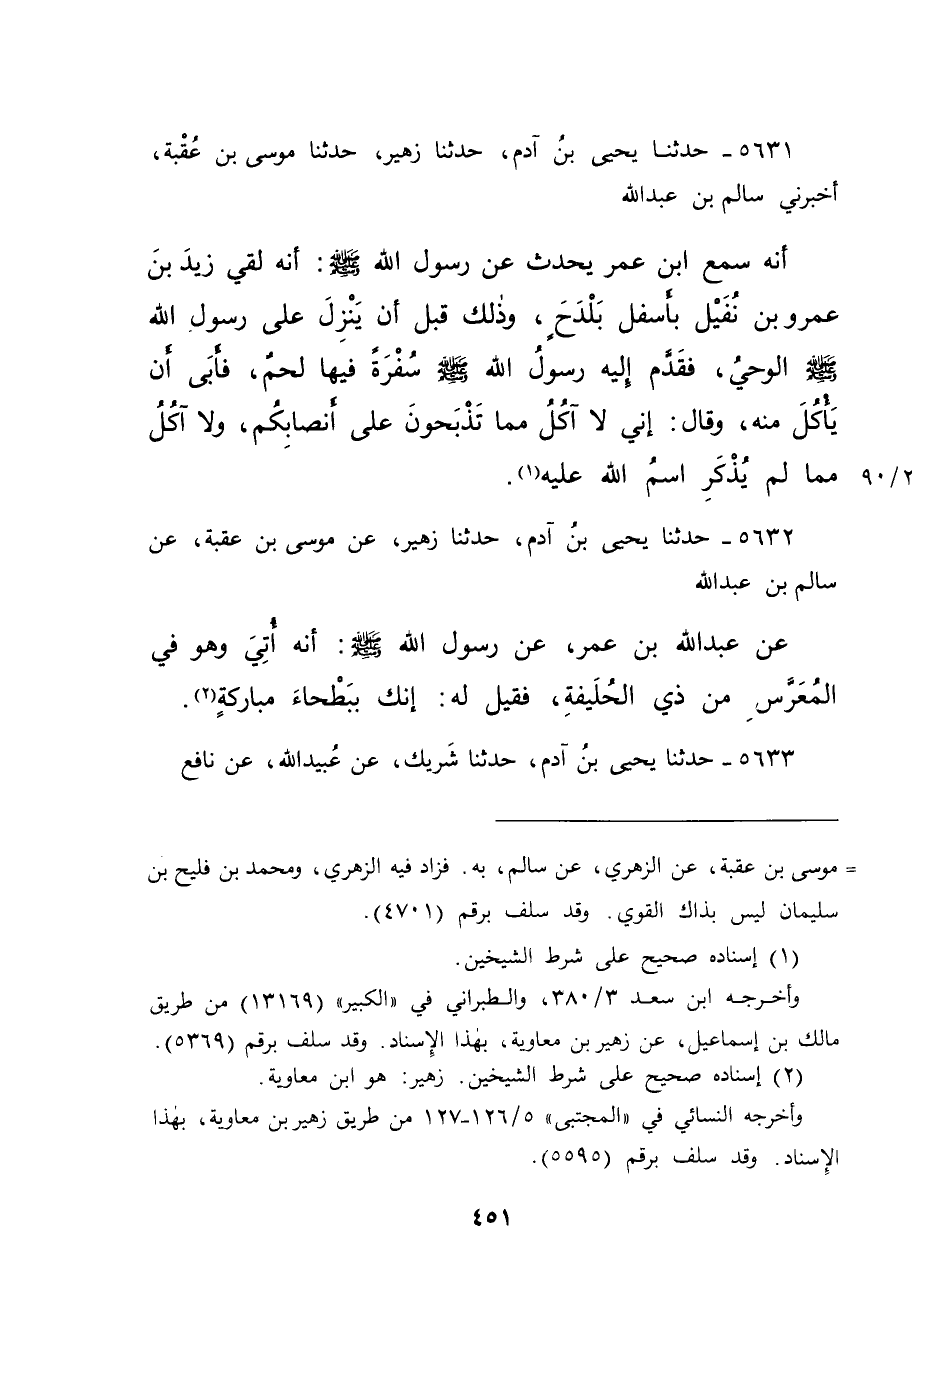 ٥٦٣١ - حدثنا يحيى بنُ آدم، حدثنا زهير، حدثنا موسى بن عُقْبة،
أخبرني سالم بن عبدالله
أنه سمع ابن عمر يحدث عن رسول الله ﷺ: أنه لقي زيدَ بنَ
عمرو بن نُفَيْل بأَسفل بَلْدَحَ، وذٰلك قبل أن يَنْزِلَ على رسول الله
ﷺ الوحيُ، فقَدَّم إليه رسولُ الله ﷺ سُفْرَةً فيها لحمٌ، فأَبَى أَن
يَأْكُلَ منه، وقال: إني لا آكُلُ مما تَذْبَحونَ على أَنصابِكُم، ولا آكُلُ
مما لم يُذْكَرِ اسمُ الله عليه(١). ٩٠/٢
٥٦٣٢ - حدثنا يحيى بنُ آدم، حدثنا زهير، عن موسى بن عقبة، عن
سالم بن عبدالله
عن عبدالله بن عمر، عن رسول الله ﷺ: أنه أُتِيَ وهو في
المُعَرَّسِ من ذي الحُلَيفةِ، فقيل له: إنك ببَطْحاءَ مباركةٍ(٢).
٥٦٣٣ - حدثنا يحيى بنُ آدم، حدثنا شَريك، عن عُبيدالله، عن نافع
= موسى بن عقبة، عن الزهري، عن سالم، به. فزاد فيه الزهري، ومحمد بن فليح بن
سليمان ليس بذاك القوي. وقد سلف برقم (٤٧٠١).
(١) إسناده صحيح على شرط الشيخين.
وأخرجه ابن سعد ٣٨٠/٣، والطبراني في «الكبير» (١٣١٦٩) من طريق
مالك بن إسماعيل، عن زهير بن معاوية، بهٰذا الإِسناد. وقد سلف برقم (٥٣٦٩).
(٢) إسناده صحيح على شرط الشيخين. زهير: هو ابن معاوية.
وأخرجه النسائي في «المجتبى» ١٢٦/٥-١٢٧ من طريق زهير بن معاوية، بهٰذا
الإِسناد. وقد سلف برقم (٥٥٩٥).
٤٥١